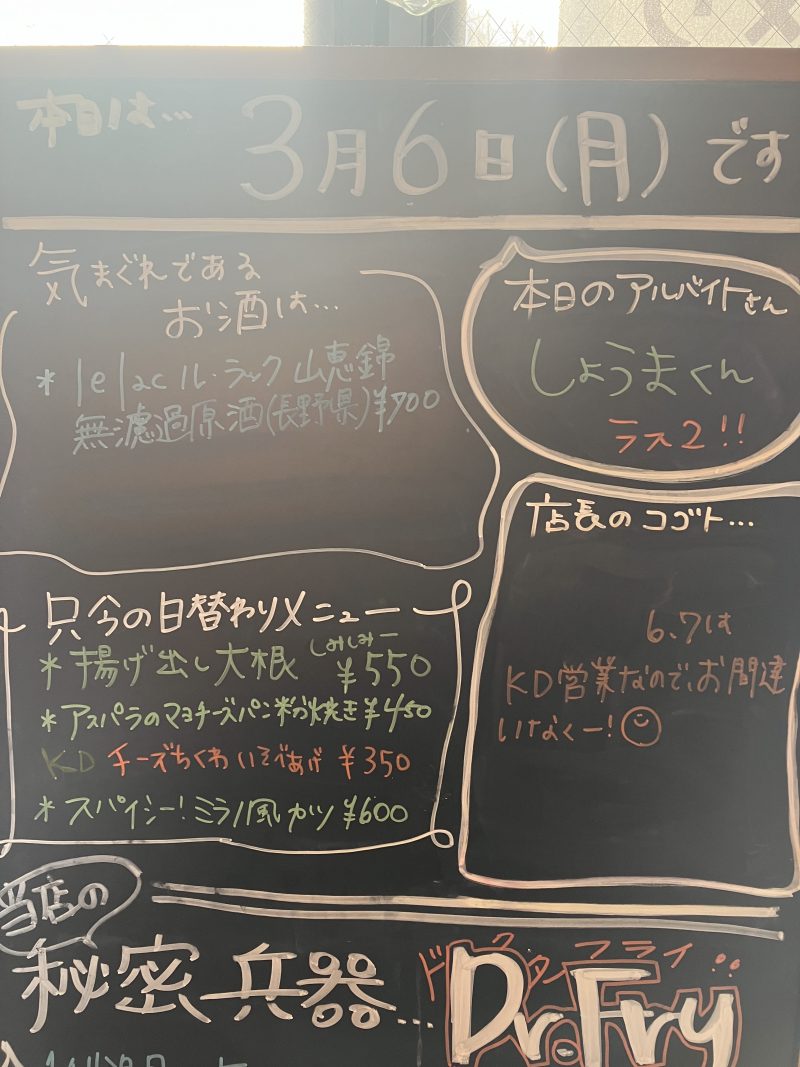 本日は…
3月6日(月)です
気まぐれである
お酒は…
* le lac ル・ラック 山恵錦
無濾過原酒(長野県)¥700
本日のアルバイトさん
しょうまくん
ラス2!!
店長のコゴト…
6、7は
KD営業なので、お間違
いなくー!
只今の日替わりメニュー
* 揚げ出し大根 しみしみー ¥550
* アスパラのマヨチーズパン粉焼き ¥450
KD チーズちくわいそべあげ ¥350
* スパイシー!ミラノ風カツ ¥600
当店の
秘密兵器…
ドクターフライ
Dr.Fry